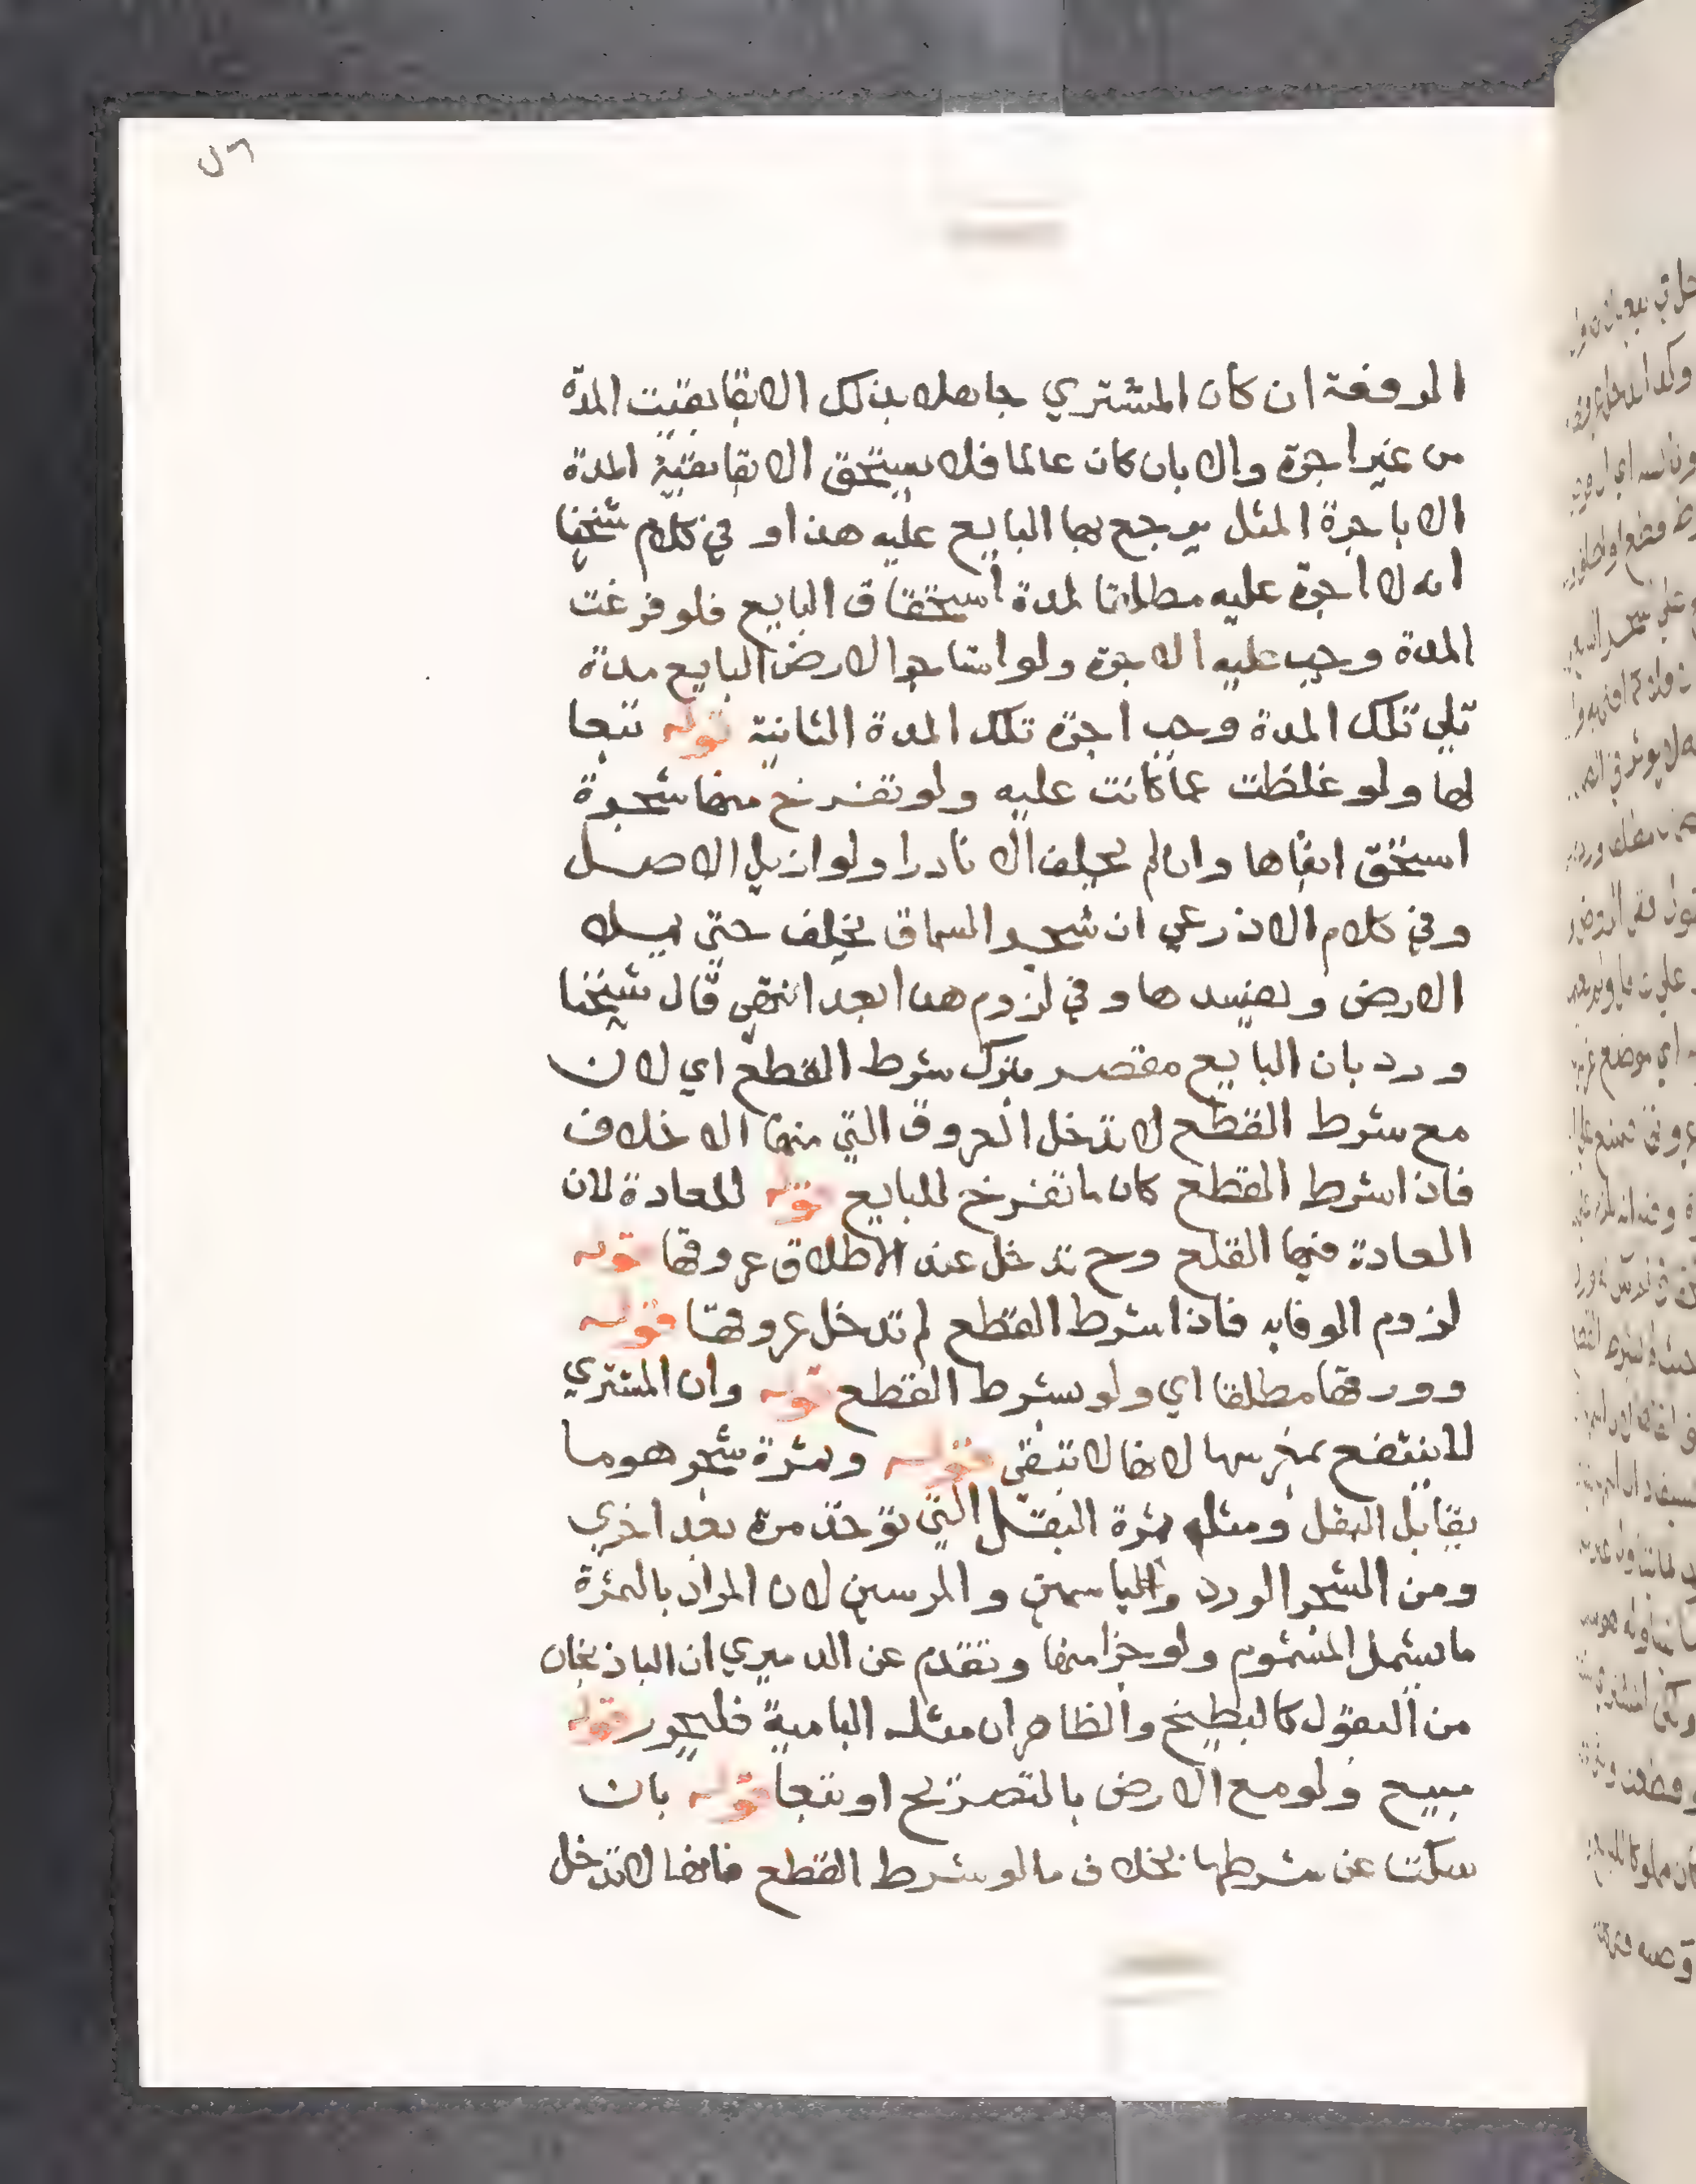 المدفعة ان كان المشتري جاهلا بذلك الابقا بقيت المدة
من غير اجرة والا بان كان عالما فلا يستحق الابقا بقية المدة
الا باجرة المثل يرجع بها البايع عليه هذا و في كلام شيخنا
انه لا اجرة عليه مطلقا لمدة استحقاق البايع فلو فرغت
المدة وجب عليه الاجرة ولو استاجر الارض البايع مدة
تلي تلك المدة وجب اجرة تلك المدة الثانية قوله تبعا
لها ولو غلظت عما كانت عليه ولو تفرخ منها شجرة
استحق ابقاها وان لم يخلف الا نادرا ولو ازيل الاصل
وفي كلام الاذرعي ان شجر السماق يخلف حتى يملا
الارض ويفسدها وفي لزوم هذا بعد انتهى قال شيخنا
ورد بان البايع مقصر بترك شرط القطع اي لان
مع شرط القطع لا تدخل العروق التي منها الاخلاف
فاذا شرط القطع كان ما تفرخ للبايع قوله للعادة لان
العادة فيها القلع وح تدخل عند الاطلاق عروقها قوله
لزوم الوفا به فاذا شرط القطع لم تدخل عروقها قوله
وورقها مطلقا اي ولو بشرط القطع قوله وان المشتري
لا ينتفع بمغرسها لانها لا تبقى قوله وثمرة شجر هو ما
يقابل البقل ومثله ثمرة البقل التي توخذ مرة بعد اخري
ومن الشجر الورد والياسمين والمرسين لان المراد بالثمرة
ما يشمل المشموم ولو جزا منها وتقدم عن الدميري ان الباذنجان
من البقول كالبطيخ والظاهر ان مثله البامية فليحرر قوله
مبيع ولو مع الارض بالتصريح او تبعا قوله بان
سكت عن شرطها بخلاف ما لو شرط القطع فانها لا تدخل